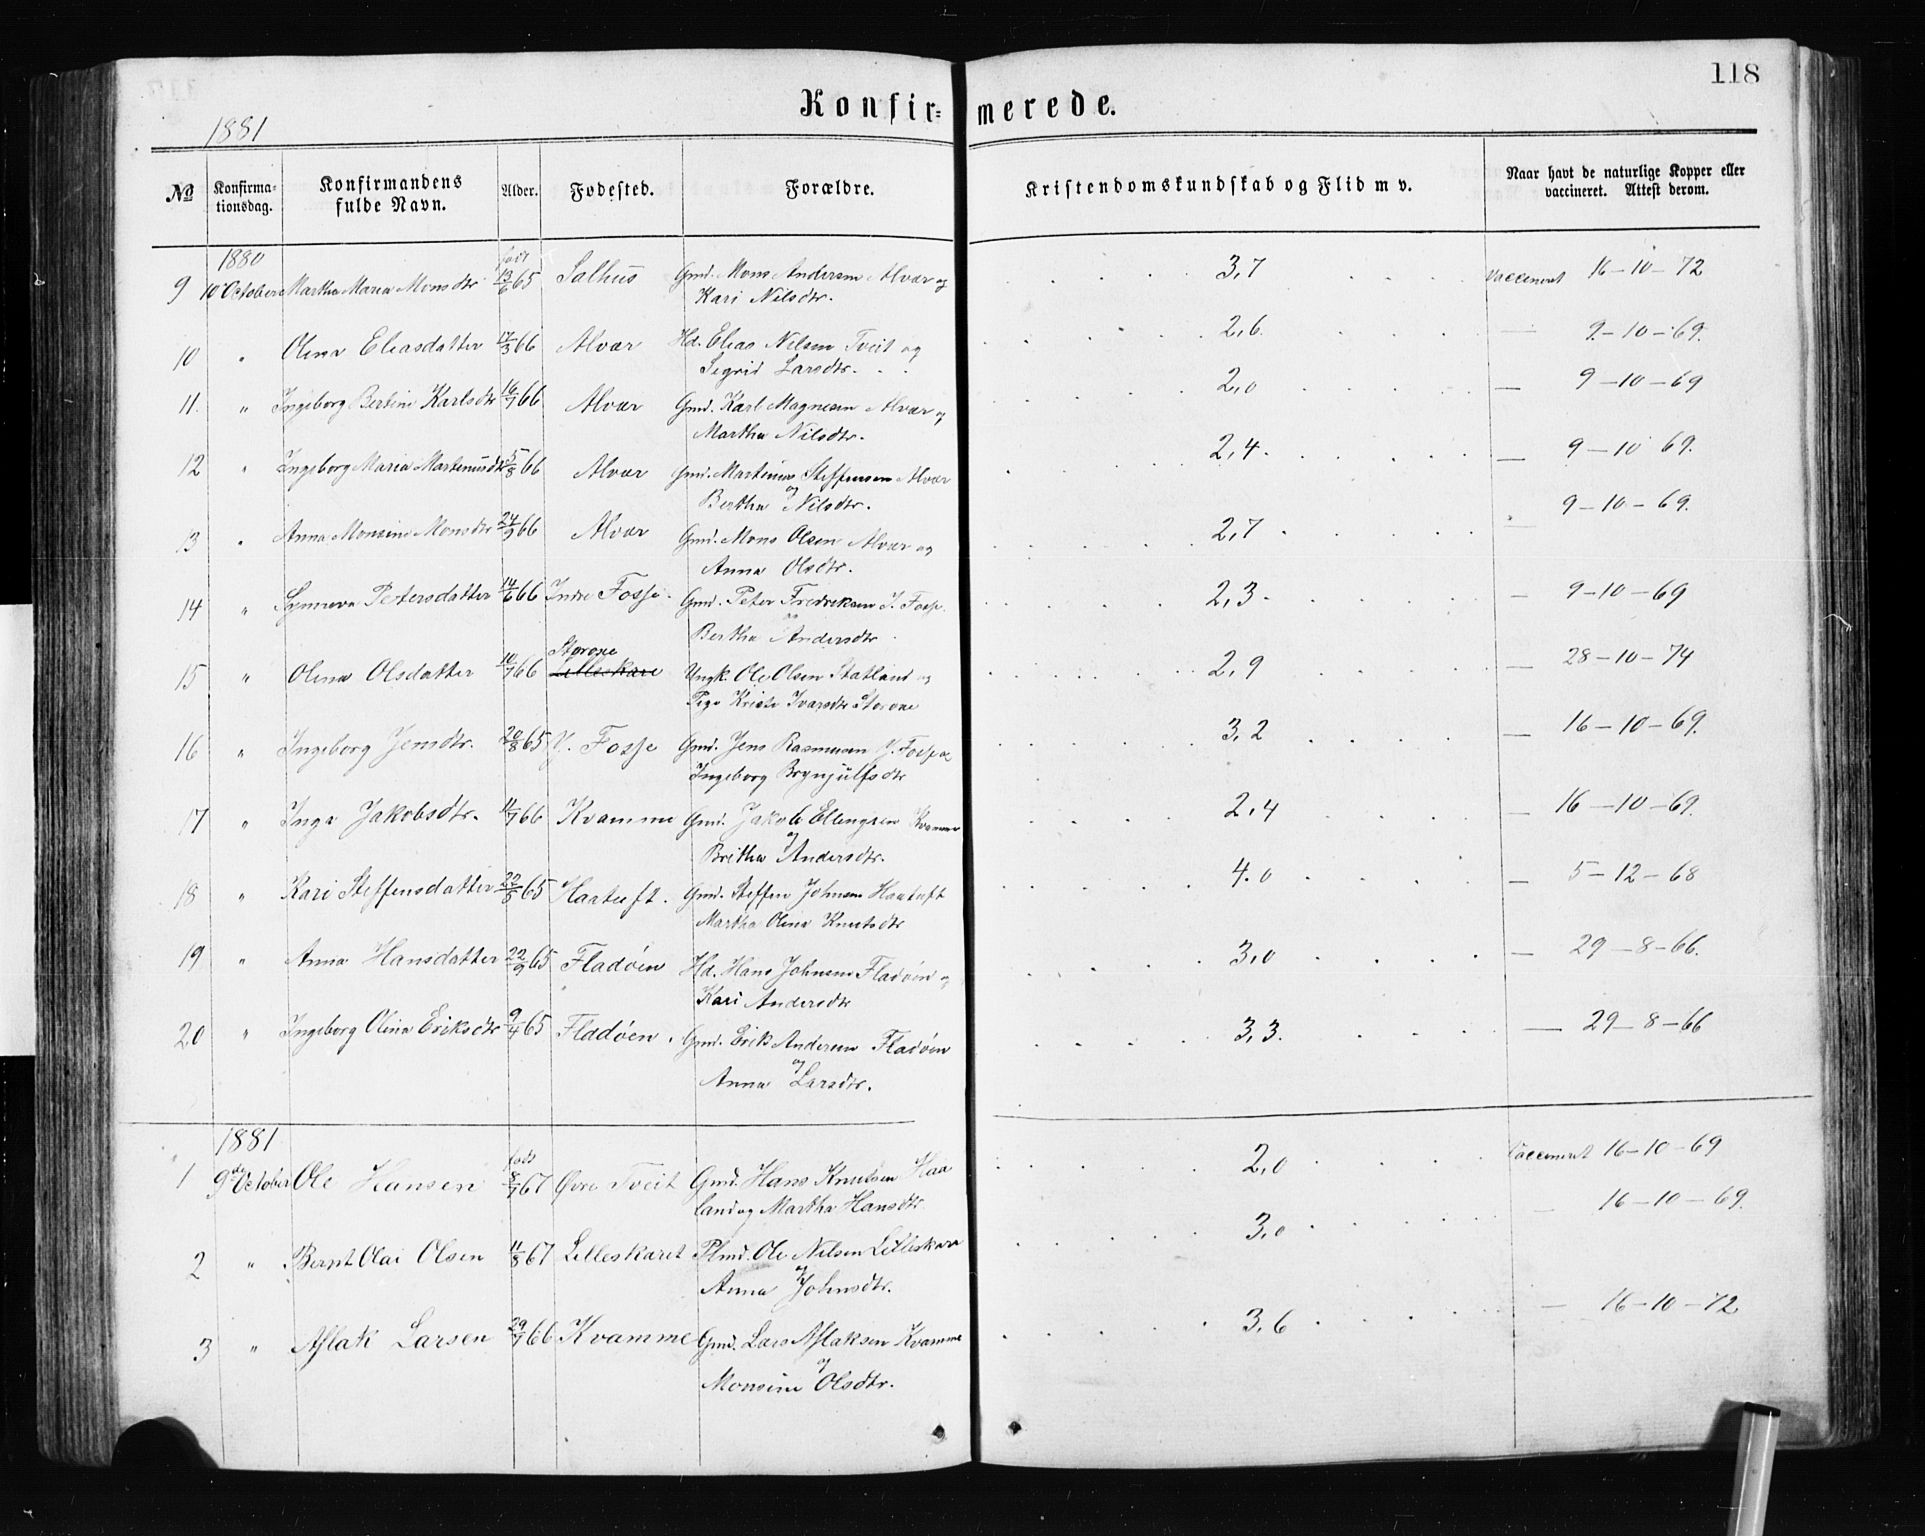 118
Konfirmerede.
1881
No Konfirmationsdag. Konfirmandens fulde Navn. Alder. Fødested. Forældre. Kristendomskundskab og Flid m v. Naar havt de naturlige Kopper eller vaccineret. Attest derom.
1880 født
9 10 October Martha Maria Monsdtr 13/6 65 Salhus Gmd. Mons Andersen Alvær og 3,7 Vaccineret 16-10-72
Kari Nilsdtr.
10 " Olina Eliasdatter 17/3 66 Alvær Hd. Elias Nilsen Tveit og 2,6 — 9-10-69.
Sigrid Larsdtr.
11. " Ingeborg Bertine Karlsdtr 16/7 66 Alvær Gmd. Karl Magnesen Alvær og 2,0 — 9-10-69
Martha Nilsdtr.
12 " Ingeborg Maria Martinusdtr 5/8 66 Alvær Gmd. Martinus Steffensen Alvær 2,4 — 9-10 69.
og
Bertha Nilsdtr.
13 " Anna Monsine Monsdtr 24/9 66 Alvær Gmd. Mons Olsen Alvær og 2,7 — 9-10-69.
Anna Olsdtr.
14 " Synneva Petersdatter 14/6 66 Indre Fosse Gmd. Peter Fredriksen I. Fosse 2,3 — 9-10-69
Bertha Andersdtr
Storone
15 " Olina Olsdatter 10/7 66 Lilleskare Ungk. Ole Olsen Statland og 2,9 — 28-10-74
Pige Kristi Ivarsdtr Storone
16 " Ingeborg Jensdtr. 20/8 65 Y. Fosse Gmd. Jens Rasmusen Y. Fosse 3,2 — 16-10-69.
Ingeborg Brynjulfsdtr
17 " Inga Jakobsdtr. 11/7 66 Kvamme Gmd. Jakob Ellingsen Kvamme 2,4 — 16-10-69.
og
Britha Andersdtr.
18 " Kari Steffensdatter 22/8 65 Haatuft. Gmd. Steffen Johnsen Haatuft 4.0 — 5-12-68
Martha Olina Knutsdtr
19 " Anna Hansdatter 22/9 65 Fladøen Hd. Hans Johnsen Fladøen og 3,0 — 29-8-66.
Kari Andersdtr
20 " Ingeborg Olina Eriksdtr 9/4 65 Fladøen. Gmd. Erik Andersen Fladøen 3,3. — 29-8-66
og
Anna Larsdtr.
1881 født
1 9de October Ole Hansen 8/7 67 Øvre Tveit Gmd. Hans Knutsen Haa 2,0 Vaccineret 16-10-69
land og Martha Hansdtr
2 " Bernt Olai Olsen 11/8 67 Lilleskaret Plmd. Ole Nilsen Lilleskare 3,0 — 16-10-69.
og
Anna Johnsdtr.
3 " Aslak Larsen 29/7 66 Kvamme Gmd. Lars Aslaksen Kvamme 3,6 — 16-10-72
og
Monsine Olsdtr.